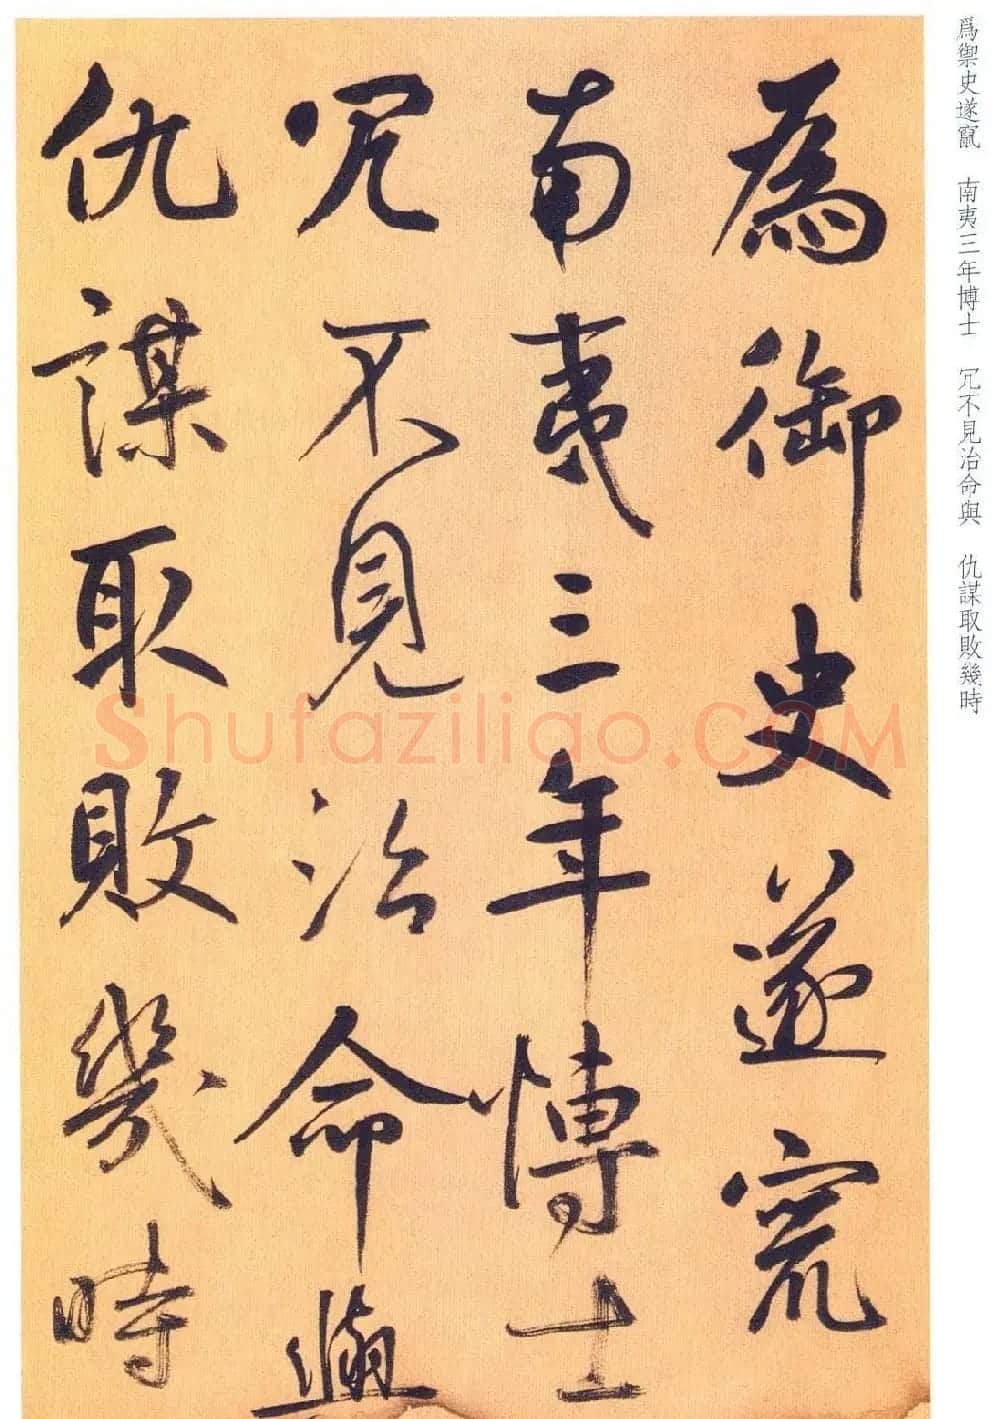 爲禦史遂竄　南夷三年博士　冗不見治命與　仇謀取敗幾時
為御史遂竄
南夷三年博士
冗不見治命與
仇謀取敗幾時
Shufaziliao.COM